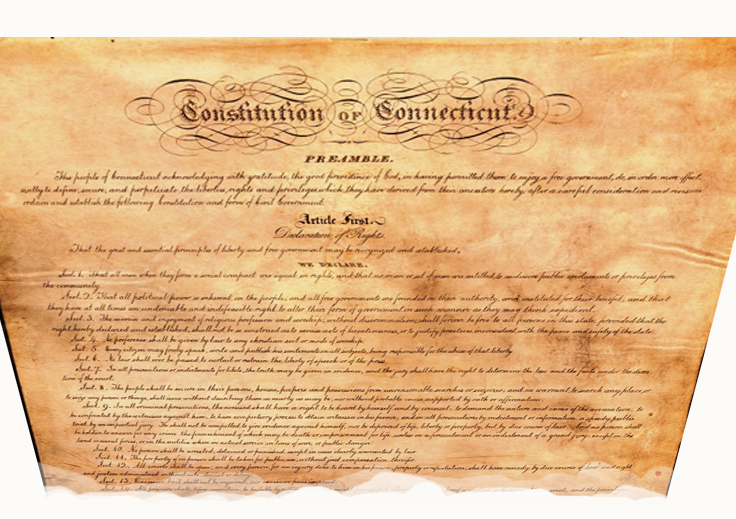 Constitution OF Connecticut.
PREAMBLE.
The people of Connecticut acknowledging with gratitude, the good providence of God, in having permitted them to enjoy a free government, do, in order more effect-
ually to define, secure, and perpetuate the liberties, rights and privileges which they have derived from their ancestors hereby, after a careful consideration and revision
ordain and establish the following Constitution and form of Civil Government.
Article First.
Declaration of Rights.
That the great and essential principles of liberty and free government may be recognized and established,
WE DECLARE,
Sect. 1. That all men when they form a social compact are equal in rights; and that no man or set of men are entitled to exclusive public emoluments or privileges from
the community.
Sect. 2. That all political power is inherent in the people, and all free governments are founded in their authority, and instituted for their benefit; and that
they have at all times an undeniable and indefeasible right to alter their form of government in such manner as they may think expedient.
Sect. 3. The exercise and enjoyment of religious profession and worship, without discrimination, shall forever be free to all persons in this state, provided that the
right hereby declared and established, shall not be so construed as to excuse acts of licentiousness, or to justify practices inconsistent with the peace and safety of the state.
Sect. 4. No preference shall be given by law to any christian sect or mode of worship.
Sect. 5. Every citizen may freely speak, write and publish his sentiments on all subjects, being responsible for the abuse of that liberty.
Sect. 6. No law shall ever be passed to curtail or restrain the liberty of speech or of the press.
Sect. 7. In all prosecutions or indictments for libels, the truth may be given in evidence, and the jury shall have the right to determine the law and the facts, under the direc-
tion of the court.
Sect. 8. The people shall be secure in their persons, houses, papers and possessions from unreasonable searches or seizures; and no warrant to search any place, or
to seize any person or things, shall issue without describing them as nearly as may be, nor without probable cause supported by oath or affirmation.
Sect. 9. In all criminal prosecutions, the accused shall have a right to be heard by himself and by counsel; to demand the nature and cause of the accusation; to
be confronted by the witnesses against him; to have compulsory process to obtain witnesses in his favour; and in all prosecutions by indictment or information, a speedy public
trial by an impartial jury. He shall not be compelled to give evidence against himself, nor be deprived of life, liberty or property, but by due course of law. And no person shall
be holden to answer for any crime, the punishment of which may be death or imprisonment for life, unless on a presentment or an indictment of a grand jury, except in the
land or naval forces, or in the militia when in actual service in time of war, or public danger.
Sect. 10. No person shall be arrested, detained or punished, except in cases clearly warranted by law.
Sect. 11. The property of no person shall be taken for public use, without just compensation therefor.
Sect. 12. All courts shall be open, and every person, for an injury done to him in his person, property or reputation, shall have remedy by due course of law and right
and justice administered without
Sect. 13. Excessive bail shall not be required, nor excessive fines imposed.
Sect. 14. All prisoners shall